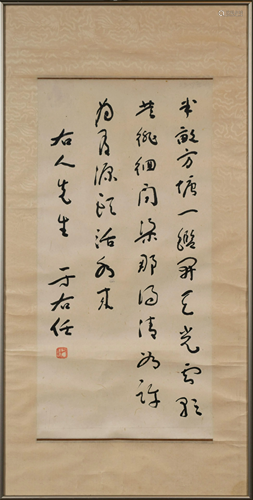 半畝方塘一鑑開天光雲影
共徘徊問渠那得清如許
為有源頭活水來
右人先生 于右任